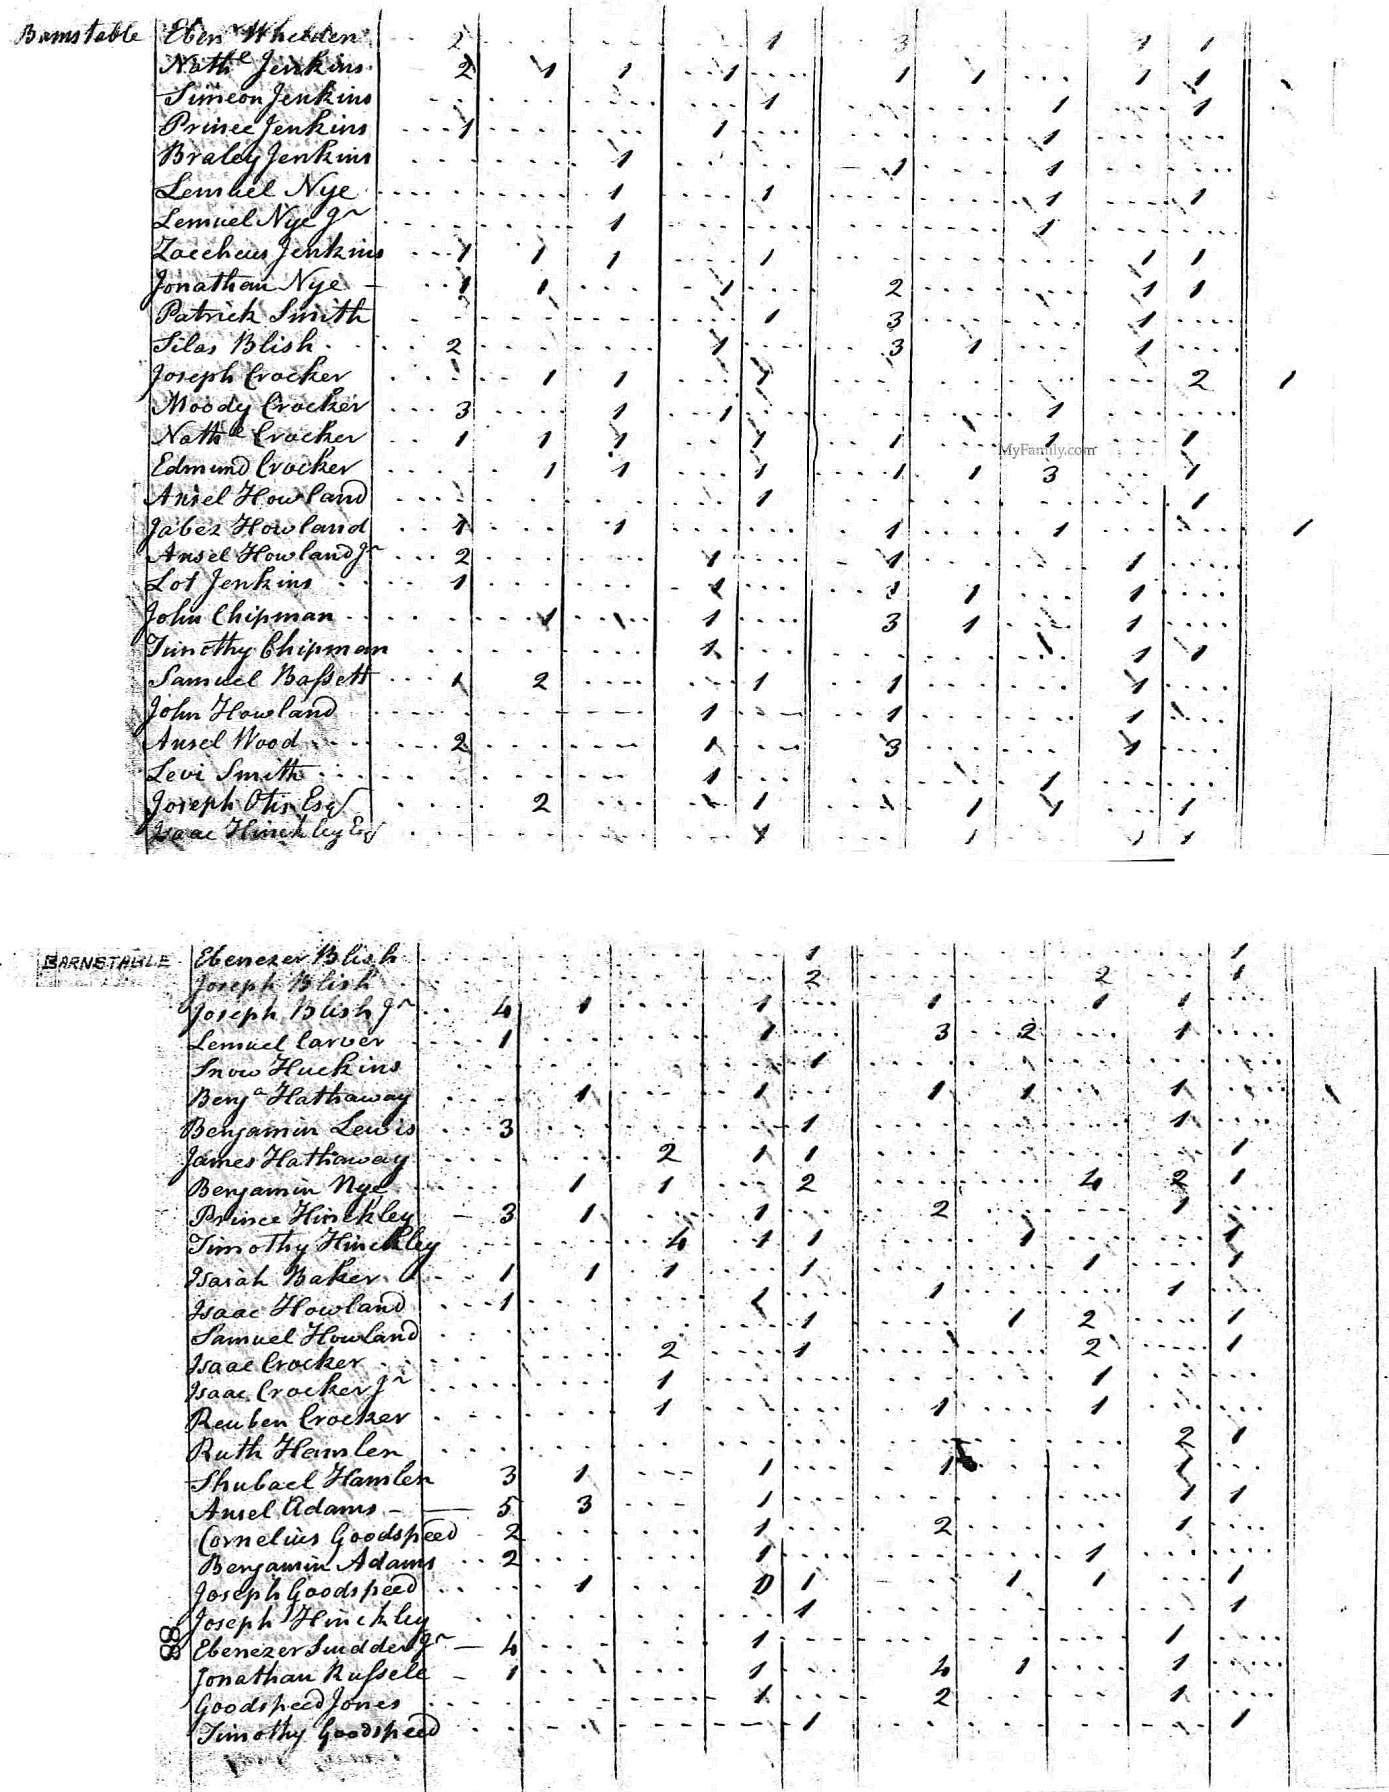 Barnstable Eben.r Whelden 2 1 3 1 1
Nath.e Jenkins 2 1 1 1 1 1 1 1
Simeon Jenkins 1 1 1
Prince Jenkins 1 1 1
Braley Jenkins 1 1 1
Lemuel Nye 1 1 1 1
Lemuel Nye Jr 1 1
Zaccheus Jenkins 1 1 1 1 1 1
Jonathan Nye 1 1 1 2 1 1
Patrick Smith 1 3 1
Silas Blish 2 1 3 1 1
Joseph Crocker 1 1 1 2 1
Moody Crocker 3 1 1 1
Nath.e Crocker 1 1 1 1 1 1 1
MyFamily.com
Edmund Crocker 1 1 1 1 1 3 1
Ansel Howland 1 1
Jabez Howland 1 1 1 1 1
Ansel Howland Jr 2 1 1 1
Lot Jenkins 1 1 1 1
John Chipman 1 1 3 1 1
Timothy Chipman 1 1 1
Samuel Bassett 1 2 1 1 1
John Howland 1 1 1
Ansel Wood 2 1 3 1
Levi Smith 1 1
Joseph Otis Esq 2 1 1 1 1
Isaac Hinckley Esq 1 1 1 1
BARNSTABLE Ebenezer Blish 1 1
Joseph Blish 2 2 1
Joseph Blish Jr 4 1 1 1 1 1
Lemuel Carver 1 1 3 2 1
Snow Huckins 1
Benj.a Hathaway 1 1 1 1 1
Benjamin Lewis 3 1 1
James Hathaway 2 1 1 1
Benjamin Nye 1 1 2 4 2 1
Prince Hinckley 3 1 1 2 1
Timothy Hinckley 4 1 1 1 1
Isaiah Baker 1 1 1 1 1 1
Isaac Howland 1 1 1 1
Samuel Howland 1 1 2 1
Isaac Crocker 2 1 2 1
Isaac Crocker Jr 1 1
Reuben Crocker 1 1 1
Ruth Hamlen 2 1
Shubael Hamlen 3 1 1 1 1
Ansel Adams 5 3 1 1 1
Cornelius Goodspeed 2 1 2 1
Benjamin Adams 2 1 1
Joseph Goodspeed 1 0 1 1 1 1
Joseph Hinckley 1 1
88
Ebenezer Scudder Jr 4 1 1
Jonathan Russele 1 1 4 1 1
Goodspeed Jones 1 2 1
Timothy Goodspeed 1 1